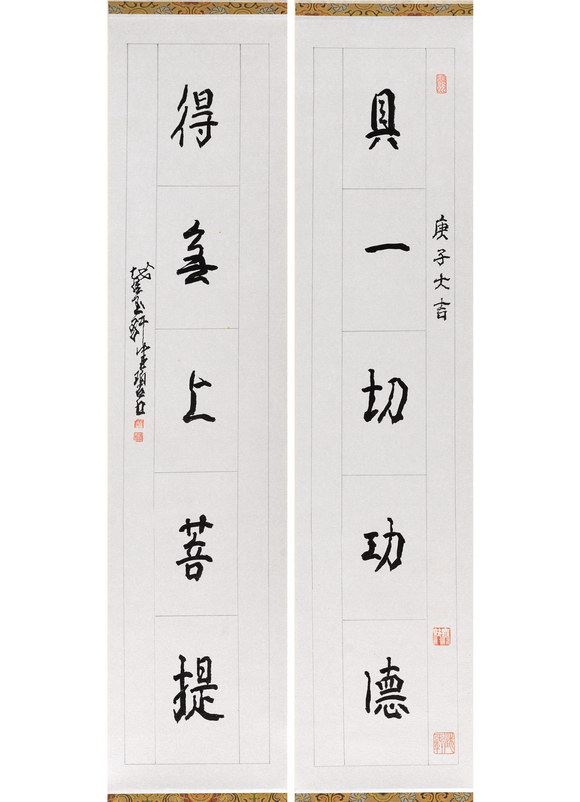 庚子大吉
具一切功德
得無上菩提